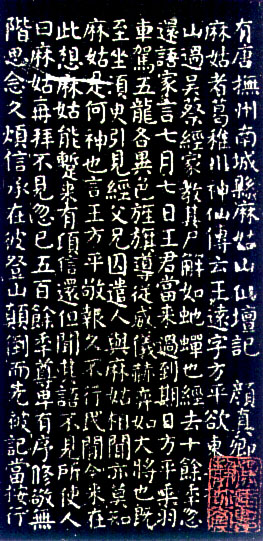 有唐撫州南城縣麻姑山仙壇記 顏真卿
麻姑者葛稚川神仙傳云王遠字方平欲東
山過吳蔡經家教其尸解如蛇蟬也經去十餘年忽
還語家言七月七日王君當來過到期日方平乘羽
車駕五龍各異色旌旗導從威儀赫弈如大將也既
至坐須臾引見經父兄因遣人與麻姑相聞亦莫知
麻姑是何神也言王方平敬報久不行民間今來在
此想麻姑能暫來有頃信還但聞其語不見所使人
曰麻姑再拜不見忽已五百餘年尊卑有序修敬無
階思念久煩信承在彼登山顛倒而先被記當按行